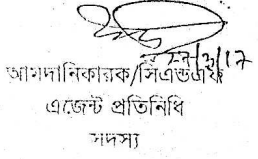 আমদানিকারক/সিএন্ডএফ
এজেন্ট প্রতিনিধি
সদস্য